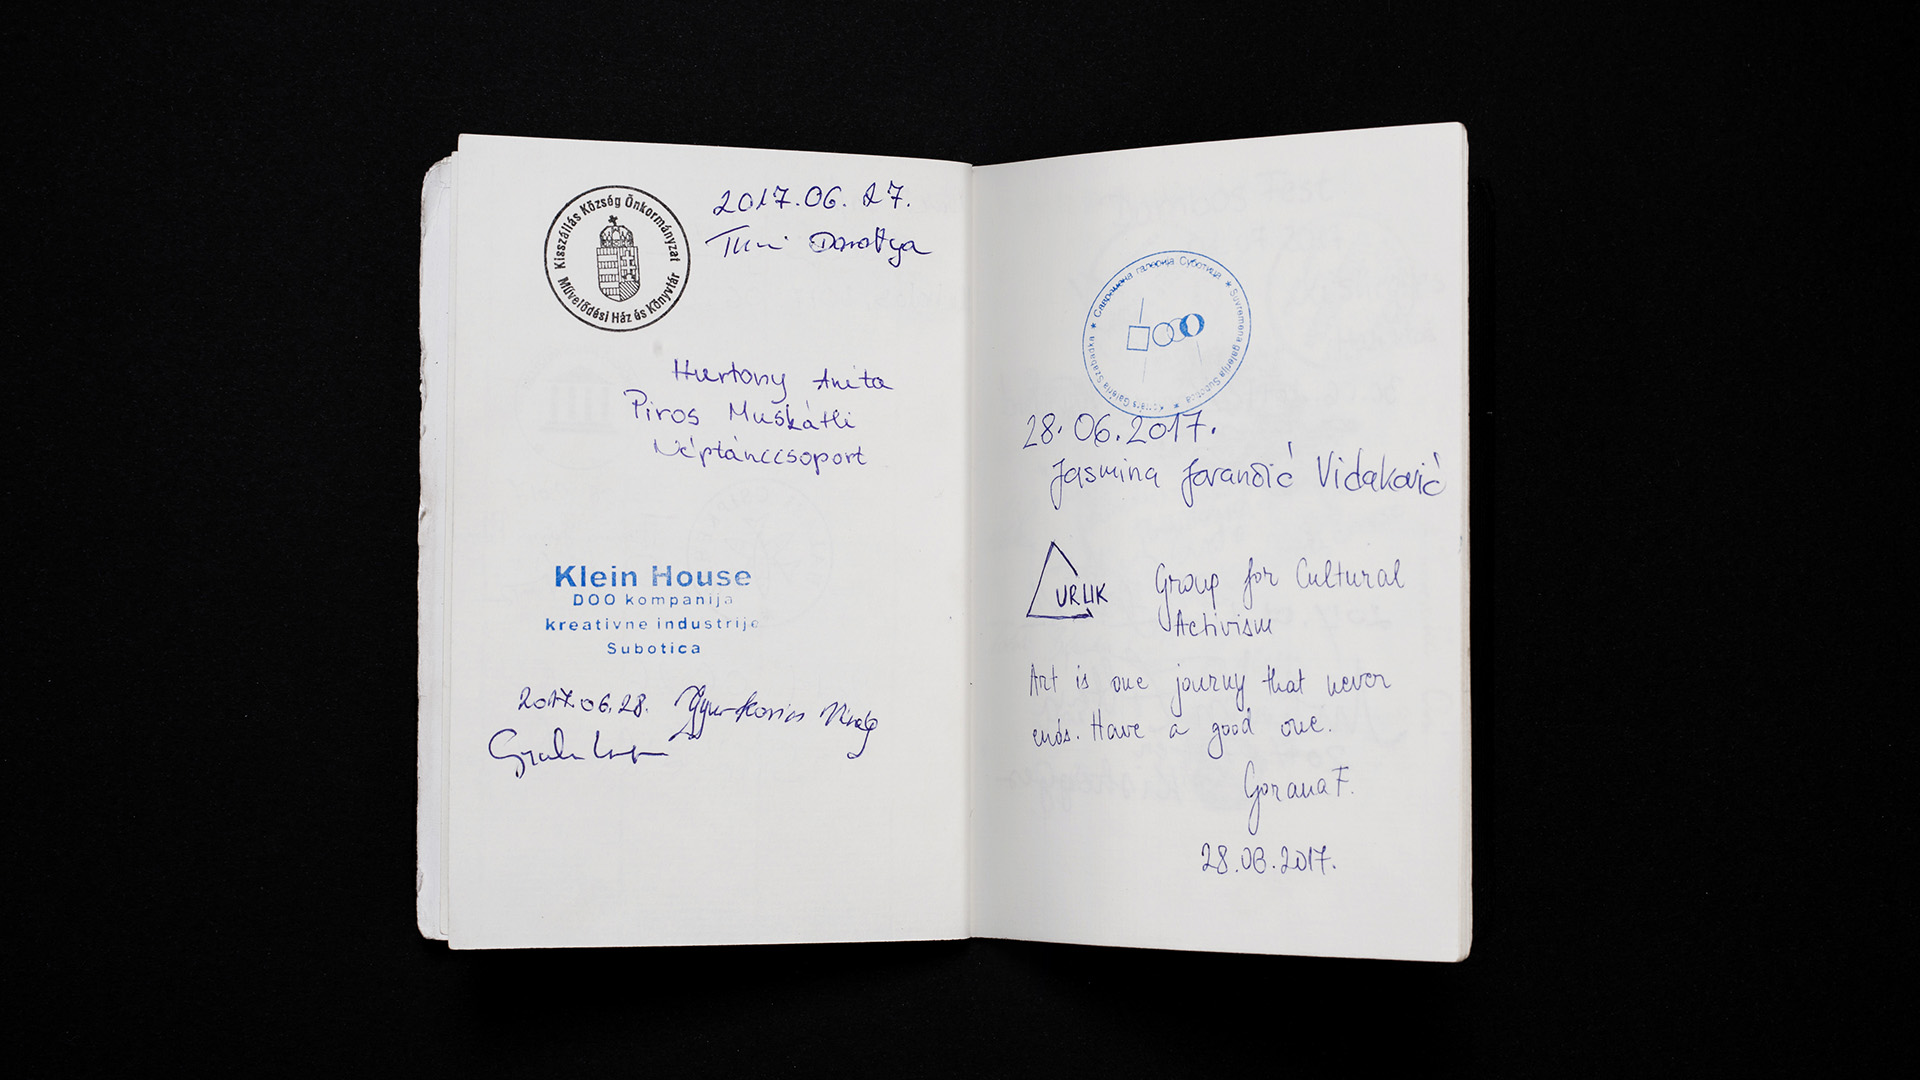 Kisszállás Község Önkormányzat
Művelődési Ház és Könyvtár
2017.06.27.
Dorottya
Hurtony Anita
Piros Muskátli
Néptánccsoport
Klein House
DOO kompanija
kreativne industrije
Subotica
2017.06.28. Gyurkovics Virág
Савремена галерија Суботица ★ Suvremena galerija Subotica ★ Kortárs Galéria Szabadka ★
28.06.2017.
Jasmina Jovančić Vidaković
URLIK
Group for Cultural
Activism
Art is one journy that never
ends. Have a good one.
Gorana F.
28.06.2017.